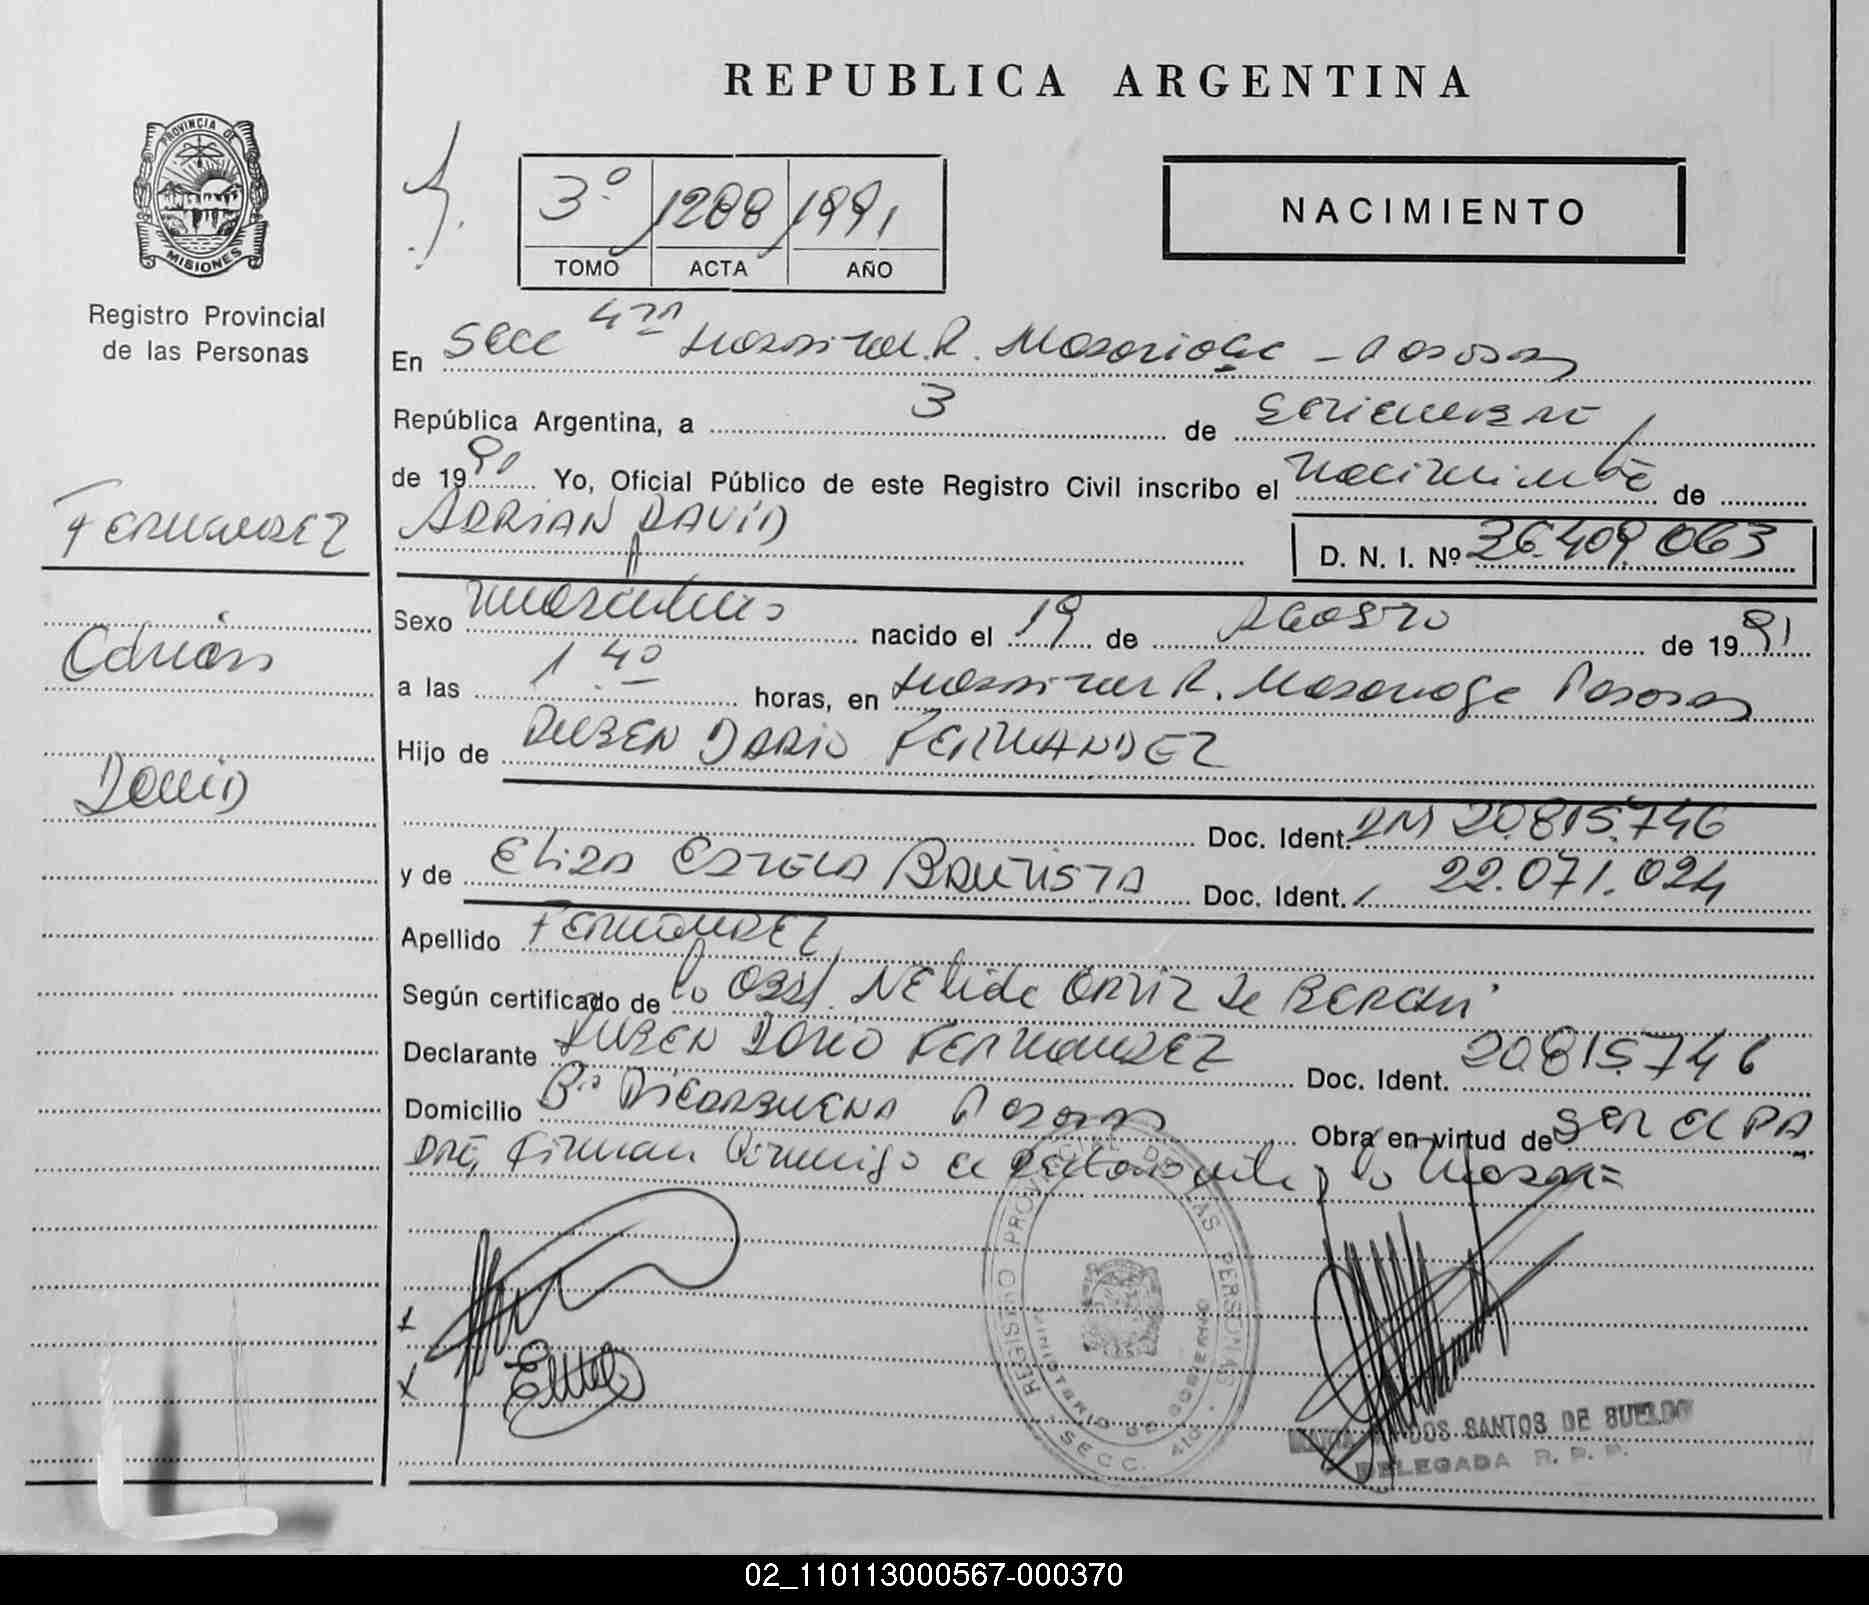 REPUBLICA ARGENTINA
PROVINCIA DE
MISIONES
Registro Provincial
de las Personas
3º 1288 1991
TOMO ACTA AÑO
NACIMIENTO
En Secc 4ta Hospital R. Madariaga - Posadas
República Argentina, a 3 de Setiembre
de 1991 Yo, Oficial Público de este Registro Civil inscribo el nacimiento de
FERNANDEZ
ADRIAN DAVID
D. N. I. Nº 36.409.063
Adrián
David
Sexo masculino nacido el 19 de Agosto de 1991
a las 1 40 horas, en Hospital R. Madariaga Posadas
Hijo de RUBEN DARIO FERNANDEZ
Doc. Ident. DNI 20.815.746
y de Eliza Estela BAUTISTA Doc. Ident. 22.071.024
Apellido FERNANDEZ
Según certificado de la Obst. Nélida Ortiz de
Declarante RUBEN Dario FERNANDEZ Doc. Ident. 20.815.746
Domicilio Bº Posadas Obra en virtud de ser el pa
dre, Firman conmigo el declarante y la Madre=
REGISTRO PROVINCIAL DE LAS PERSONAS
MINISTERIO DE GOBIERNO
SECC. 4ta.
DOS SANTOS DE BUELDO
DELEGADA R. P. P.
02_110113000567-000370